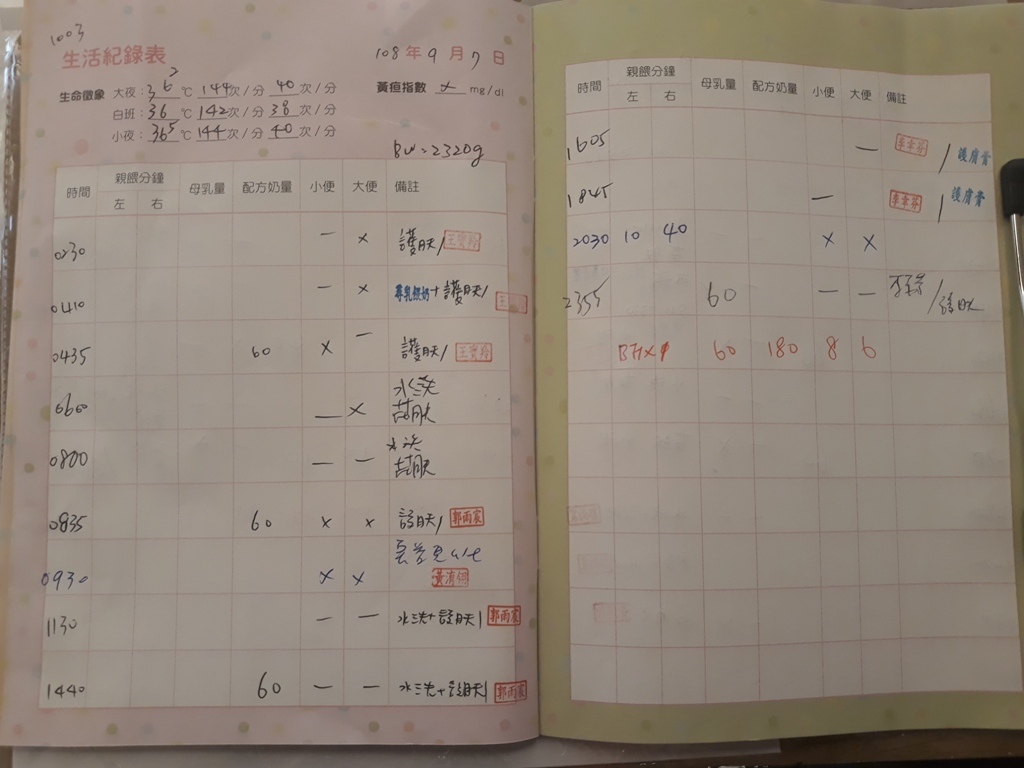 1003
生活紀錄表 108 年 9 月 7 日
生命徵象 大夜：36.2 ℃ 144 次/分 40 次/分 黃疸指數 x mg/dl
白班：36 ℃ 142 次/分 38 次/分
小夜：365 ℃ 144 次/分 40 次/分
BW=2320g
時間 親餵分鐘 母乳量 配方奶量 小便 大便 備註
左 右
0230 — x 護膚/
0410 — x + 護膚/
0435 60 x — 護膚/
0600 — x 水洗
0800 — — 水洗
0835 60 x x 護膚/ 郭雨宸
0930 x x
1130 — — 水洗+護膚/ 郭雨宸
1440 60 — — 水洗+護膚/ 郭雨宸
時間 親餵分鐘 母乳量 配方奶量 小便 大便 備註
左 右
1605 — / 護膚膏
1845 — / 護膚膏
2030 10 40 x x
2355 60 — — /護膚
60 180 8 6